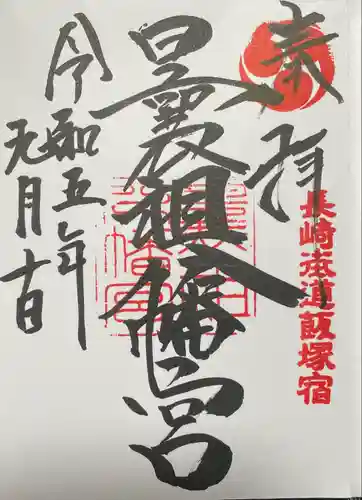 奉拝
長崎街道飯塚宿
曩祖八幡宮
令和五年
元月十日